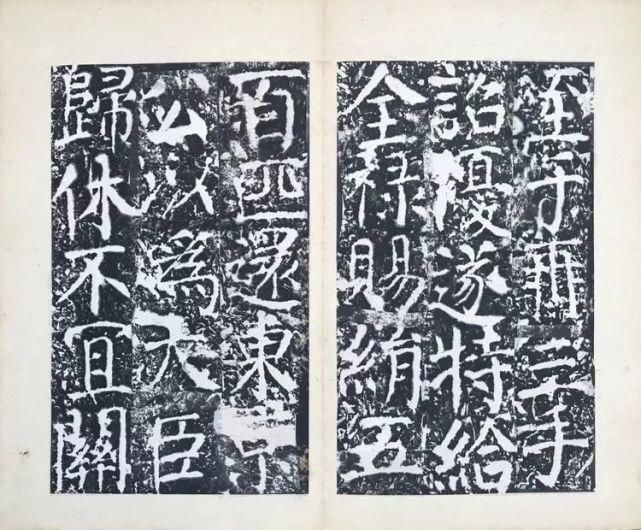 至于再三手
詔優遂特給
全祿賜絹五
百匹還東京
公以為大臣
歸休不宜關